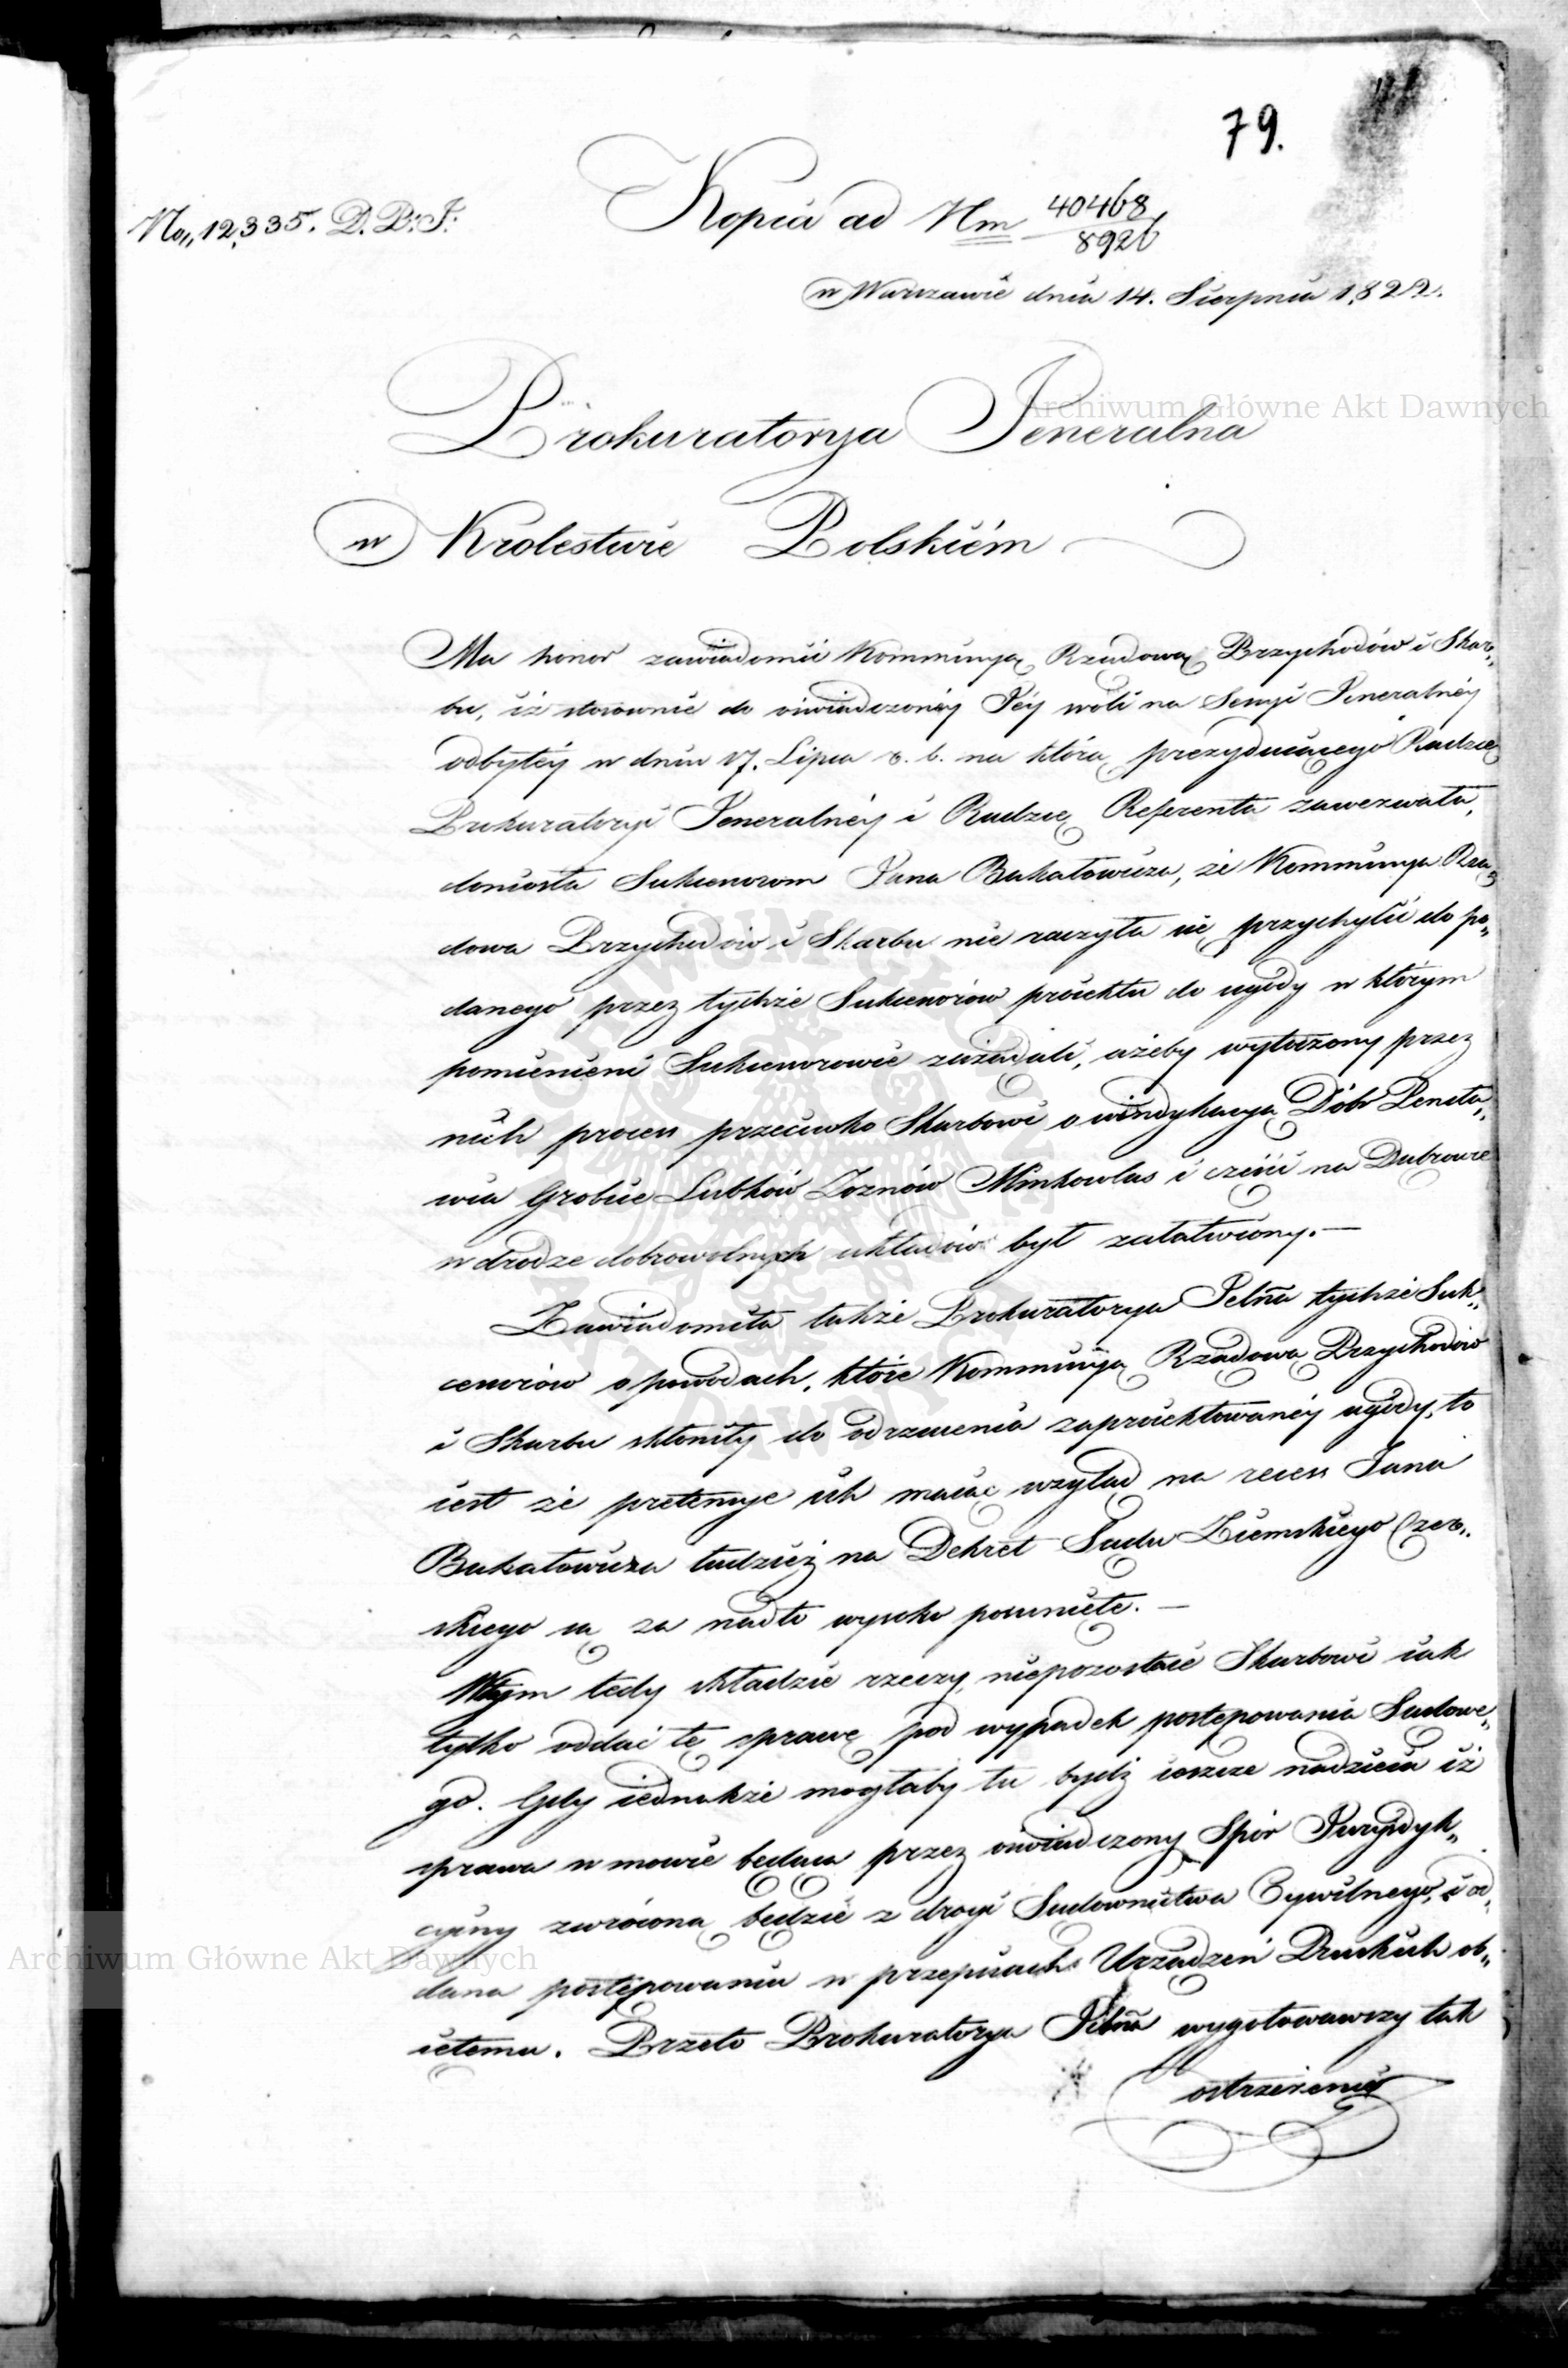 79.
No„ 12,335. D. D: J:
Kopia ad Nm 40468/8926
w Warszawie dnia 14. Sierpnia 1822.
Prokuratorya Jeneralna
w Królestwie Polskiém
Ma honor zawiadomić Kommissyą Rządową Przychodów i Skar„
bu, iż stosownie do oświadczonéy Jéy woli na Sessyi Jeneralnéy
odbytéy w dniu 17. Lipca r. b. na którą prezyduiącego Radzcę
Prokuratoryi Jeneralnéy i Radzcę Referenta zawezwała,
doniosła Sukcessorom Jana Bukatowicza, że Kommissya Rzą„
dowa Przychodów i Skarbu nie raczyła się przychylić do po„
danego przez tychże Sukcessorów proiektu do ugody w którym
pomienieni Sukcessorowie zażądali, ażeby wytoczony przez
nich process przeciwko Skarbowi o windykacyą Dóbr Pencła„
wia Grobice Lubków Loznów Minkowlas i części na Dubrowce
w drodze dobrowolnych układów był załatwiony.—
Zawiadomiła także Prokuratorya Jelna tychże Suk„
cessorów o powodach, które Kommissyą Rządową Przychodów
i Skarbu skłoniły do odrzucenia zaproiektowanéy ugody, to
iest że pretensye ich maiąc wzgląd na recess Jana
Bukatowicza tudzież na Dekret Sądu Ziemskiego Czer„
skiego są za nadto wysoko posunięte.—
W tym tedy składzie rzeczy, niepozostaie Skarbowi iak
tylko oddać tę sprawę pod wypadek postępowania Sądowe„
go. Gdy iednakże mogłaby tu bydź ieszcze nadzieia iż
sprawa w mowie będąca przez oświadczony Spór Jurysdyk„
cyiny zwróconą będzie z drogi Sądownictwa Cywilnego, i od„
dana postępowaniu w przepisach Urządzeń Pruskich ob„
iętemu. Przeto Prokuratorya Jelna wygotowawszy tak
ostrzeżenie
Archiwum Główne Akt Dawnych
Archiwum Główne Akt Dawnych
ARCHIWUM GŁÓWNE AKT DAWNYCH